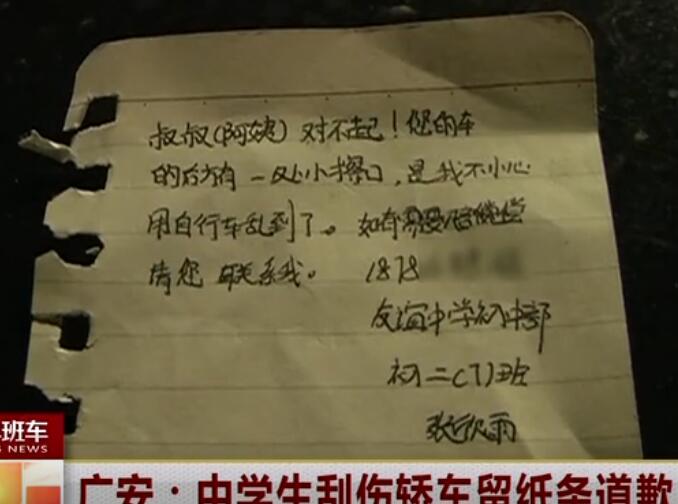 叔叔(阿姨)对不起!您的车
的后方有一处小擦口,是我不小心
用自行车乱到了。如有需要赔偿
请您联系我。1878
友谊中学初中部
初二(7)班
张欣雨
班车
NEWS
广安:中学生刮伤轿车留纸条道歉